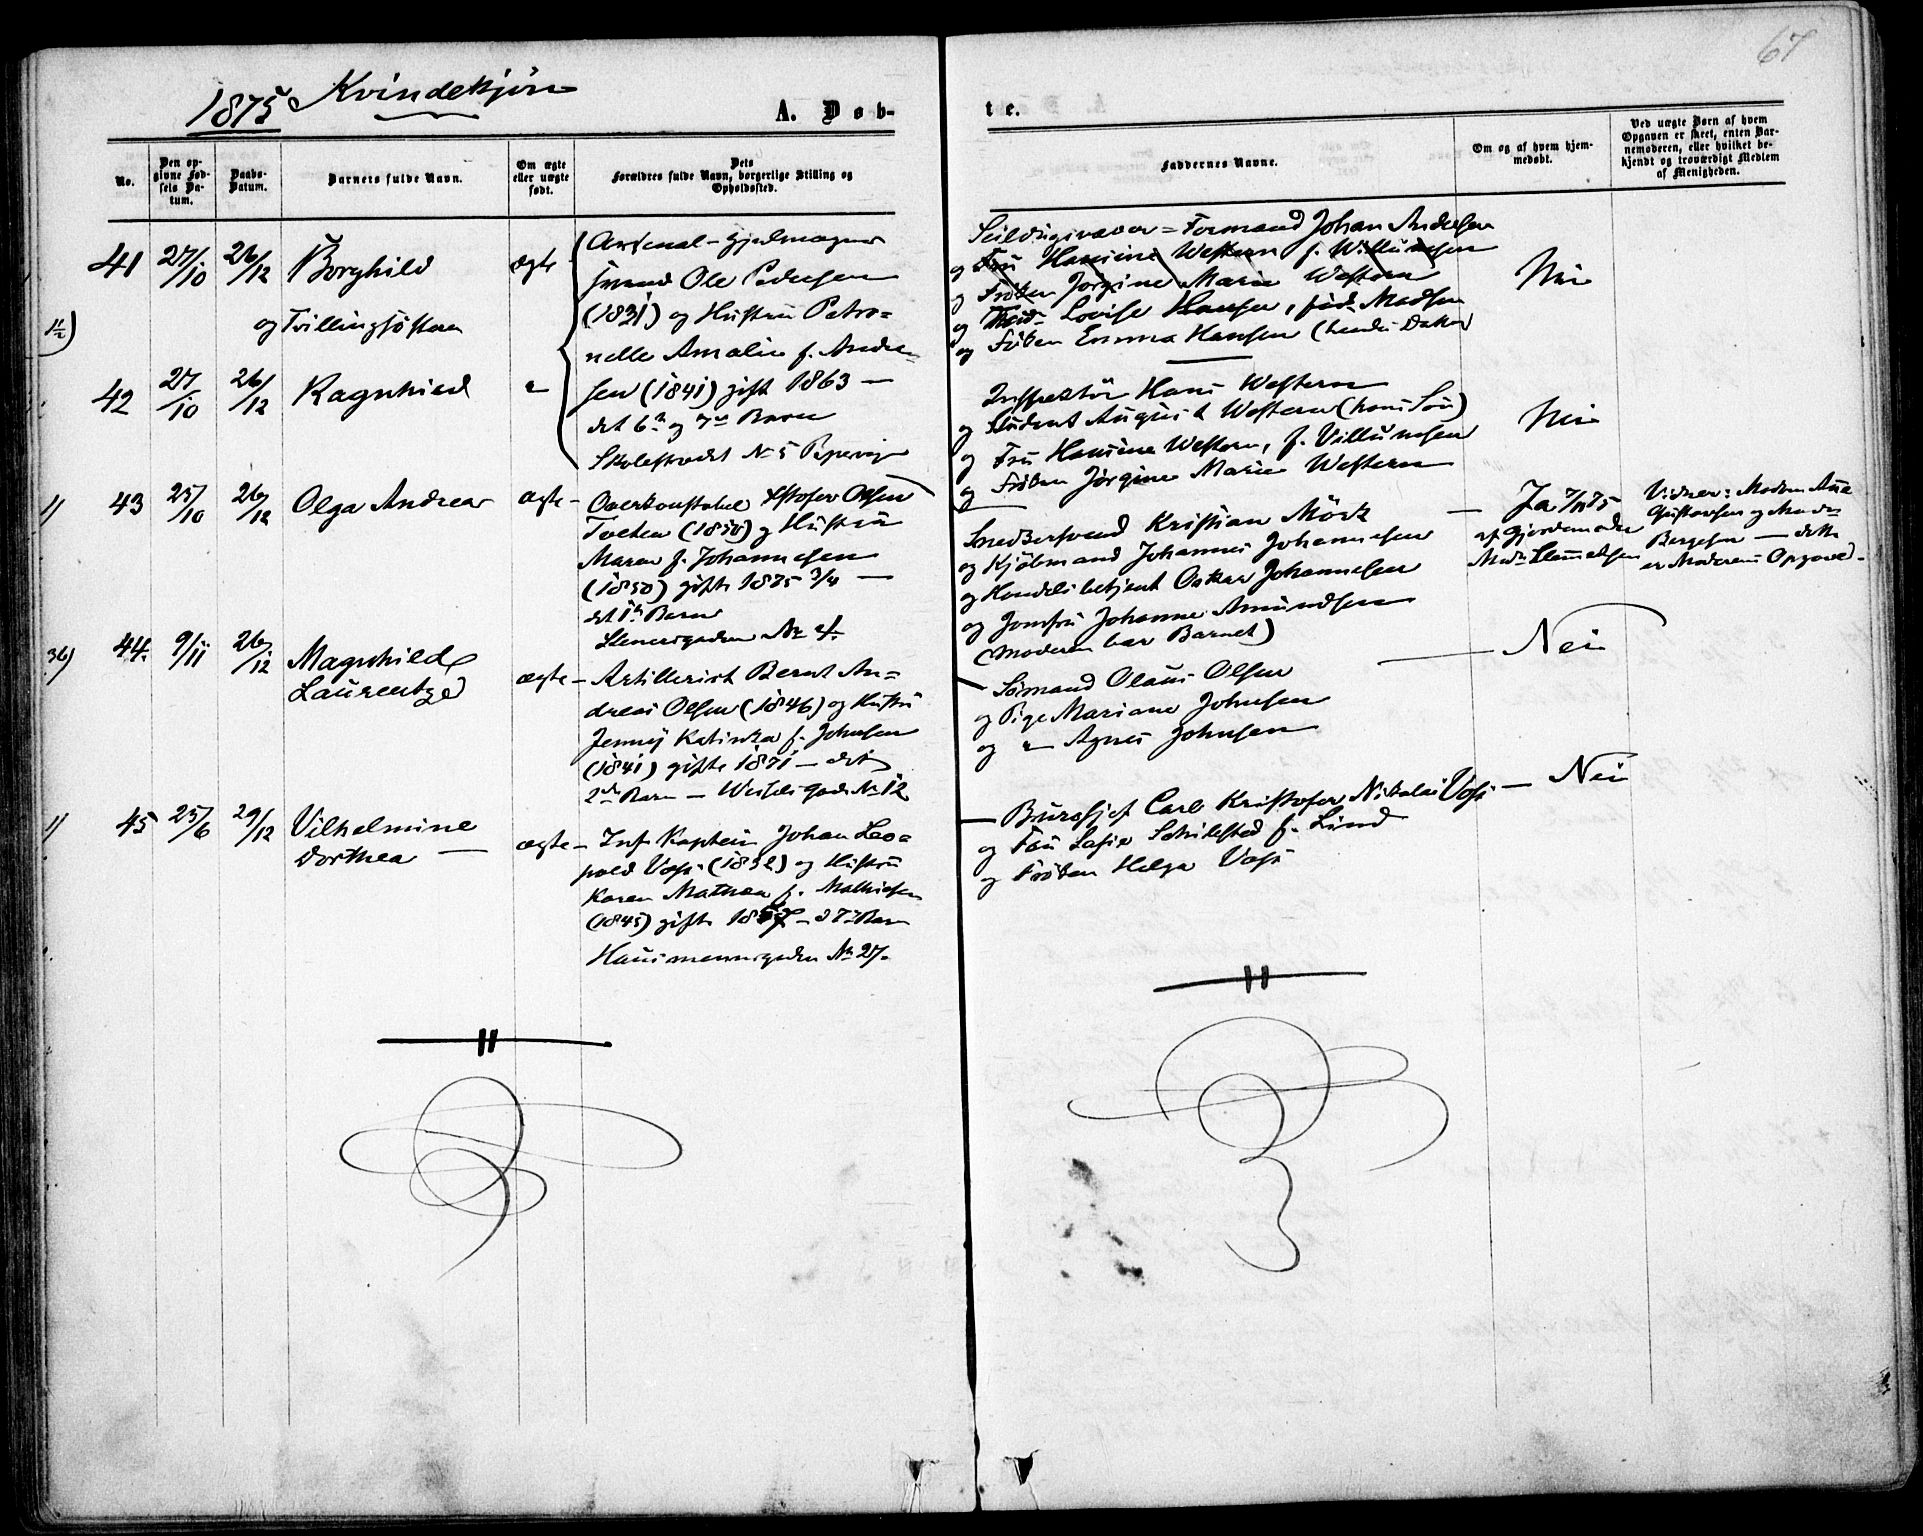 67
1875 Kvindekjøn
A. Døb-
te.
No.
Den op-
givne Fød-
sels Da-
tum.
Daabs-
Datum.
Barnets fulde Navn.
Om ægte
eller uægte
født.
Dets
Forældres fulde Navn, borgerlige Stilling og
Opholdssted.
Faddernes Navne.
Om og af hvem hjem-
medøbt.
Ved uægte Børn af hvem
Opgaven er skeet, enten Bar-
nemoderen, eller hvilket be-
kjendt og troværdigt Medlem
af Menigheden.
41 27/10 26/12 Borghild ægte
og Tvillingsøsteren
42 27/10 26/12 Ragnhild "
Arsenal-Hjulmager
svend Ole Pedersen
(1831) og Hustru Petro=
nelle Amalie f. Andre
sen (1841) gift 1863 —
det 6te og 7de Barn
Skolestrædet No 5 Pipervig
Seildugsvæver=Formand Johan Andersen
og Fru Hansine Western f. Willumsen
og Frøken Jørgine Marie Western
og Lovise Hansen, fød. Madsen
og Frøken Emma Hansen (hendes Datter)
Nei
Inspektør Hans Western
og Student August Western (hans Søn)
og Fru Hansine Western, f. Villumsen
og Frøken Jørgine Marie Western
Nei
1) 43 25/10 26/12 Olga Andrea ægte —
Overkonstabel Kristofer Olsen
Tveten (1850) og Hustru
Maren f. Johannesen
(1850) gifte 1875 3/4 —
det 1te Barn
Stenersgaden No 4.
Snedkersvend Kristian Mörk
og Kjøbmand Johannes Johannesen
og Handelsbetjent Oskar Johannesen
og Jomfru Johanne Amundsen
(Moderen bar Barnet)
Ja 7/11 75
af Gjordemoder
Vidner: Madam
Gustavsen og Madam
Bergesen — dette
er Moderens Opgave.
36) 44. 9/11 26/12 Magnhild
Laurentze ægte —
Artillerist Bernt An=
dreas Olsen (1846) og Hustru
Jenny Katinka f. Johnsen
(1841) gifte 1871 — det
2det Barn — Wessels Gade No 12
Sømand Olaus Olsen
og Pige Mariane Johnsen
og " Agnes Johnsen
Nei
1) 45 25/6 29/12 Vilhelmine
Dorthea — ægte —
Inf. Kaptein Johan Leo=
pold Voss (1832) og Hustru
Karen Mathea f. Mathiesen
(1845) gifte
Hausmannsgaden No 27.
Bureauchef Carl Kristofer Nikolai Voss —
og Fru f. Lund
og Frøken Helga Voss
Nei